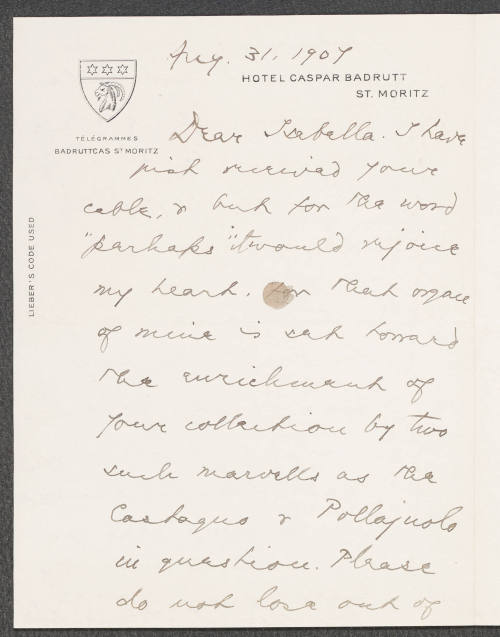 Aug. 31, 1907
HOTEL CASPAR BADRUTT
ST. MORITZ
TÉLÉGRAMMES
BADRUTTCAS ST MORITZ
LIEBER'S CODE USED
Dear Isabella. I have
just received your
cable, & but for the word
"perhaps" it would rejoice
my heart. For that organ
of mine is set toward
the enrichment of
your collection by two
such marvells as the
Castagno & Pollajuolo
in question. Please
do not lose out of